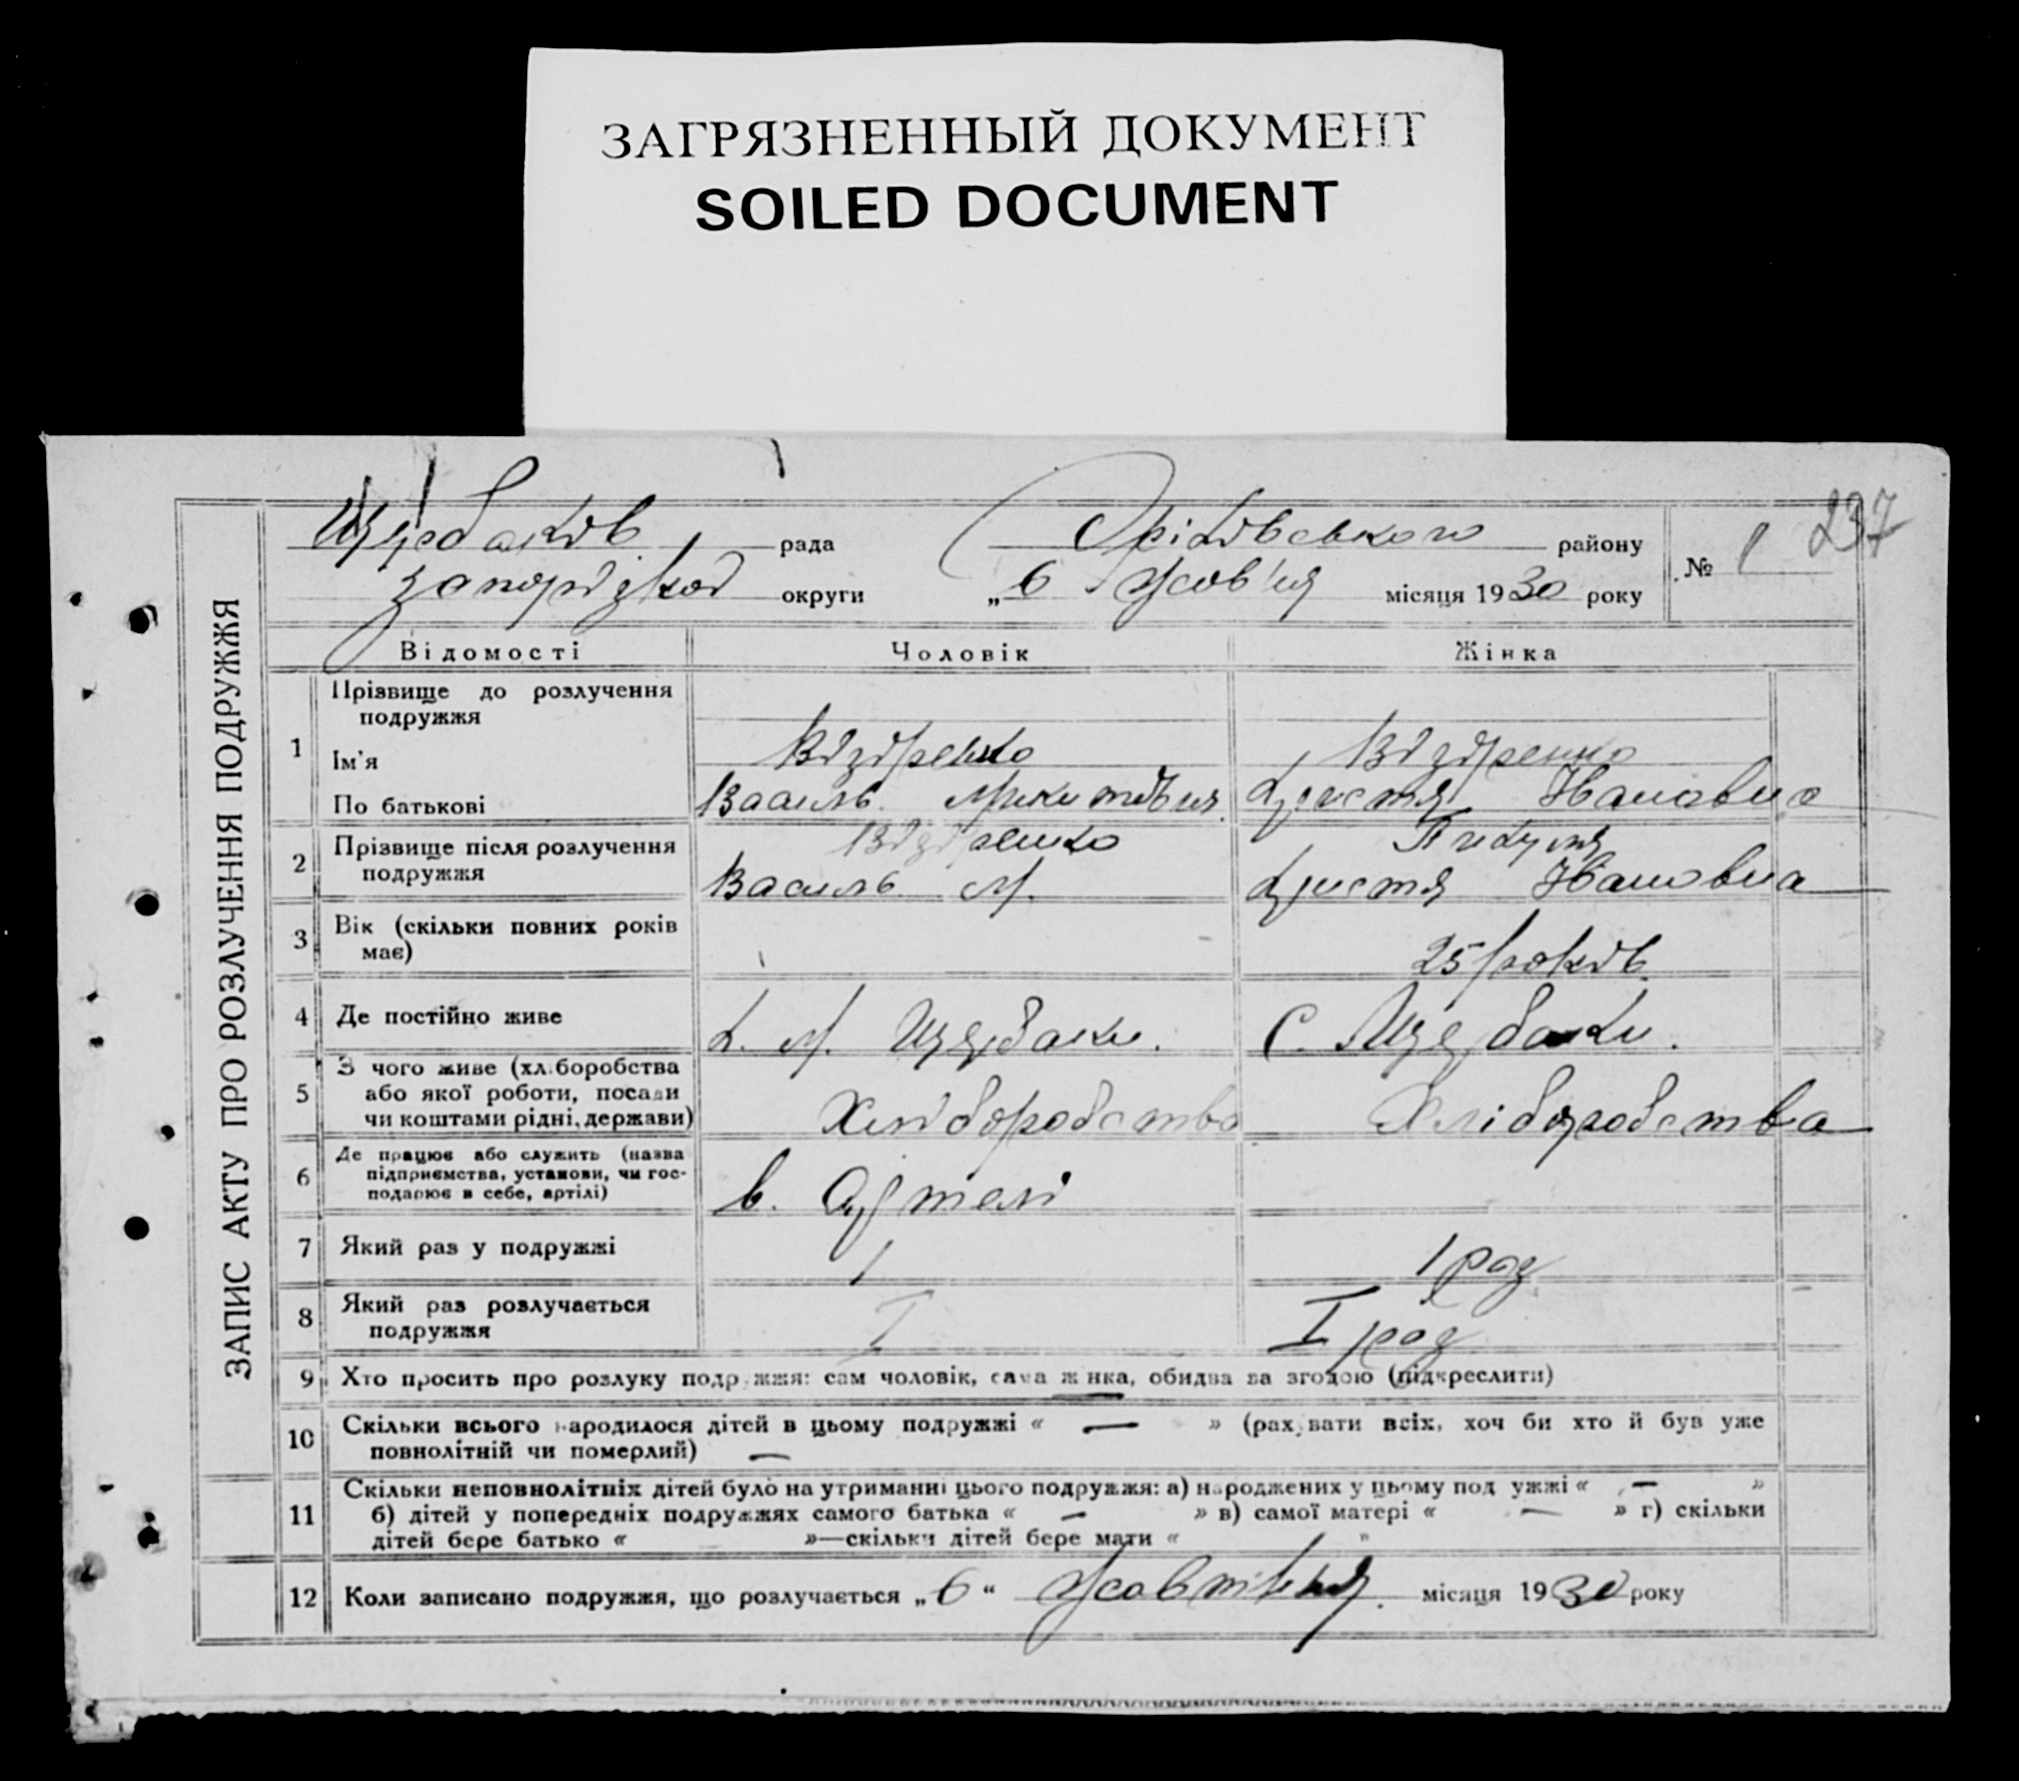 ЗАГРЯЗНЕННЫЙ ДОКУМЕНТ
SOILED DOCUMENT
237
рада Оріхівського району № 1
округи „6 Жов'ня місяця 1930 року
ЗАПИС АКТУ ПРО РОЗЛУЧЕННЯ ПОДРУЖЖЯ
Відомості Чоловік Жінка
1 Прізвище до розлучення
подружжя
Ім'я
По батькові Василь Христя Івановна
2 Прізвище після розлучення
подружжя Василь М. Христя Івановна
3 Вік (скільки повних років
має) 25 років
4 Де постійно живе Х. М. Щербаки. С. Щербаки.
5 З чого живе (хліборобства
або якої роботи, посади
чи коштами рідні, держави) Хліборобство Хліборобства
6 Де працює або служить (назва
підприємства, установи, чи гос-
подарює в себе, артілі) в. Артелі
7 Який раз у подружжі 1 1 раз
8 Який раз розлучається
подружжя I I раз
9 Хто просить про розлуку подружжя: сам чоловік, сама жінка, обидва за згодою (підкреслити)
10 Скільки всього народилося дітей в цьому подружжі « — » (рахувати всіх, хоч би хто й був уже
повнолітній чи померлий) —
11 Скільки неповнолітніх дітей було на утриманні цього подружжя: а) народжених у цьому подружжі « — »
б) дітей у попередніх подружжях самого батька « — » в) самої матері « — » г) скільки
дітей бере батько « »—скільки дітей бере мати « »
12 Коли записано подружжя, що розлучається „6“ Жовтня місяця 1930 року